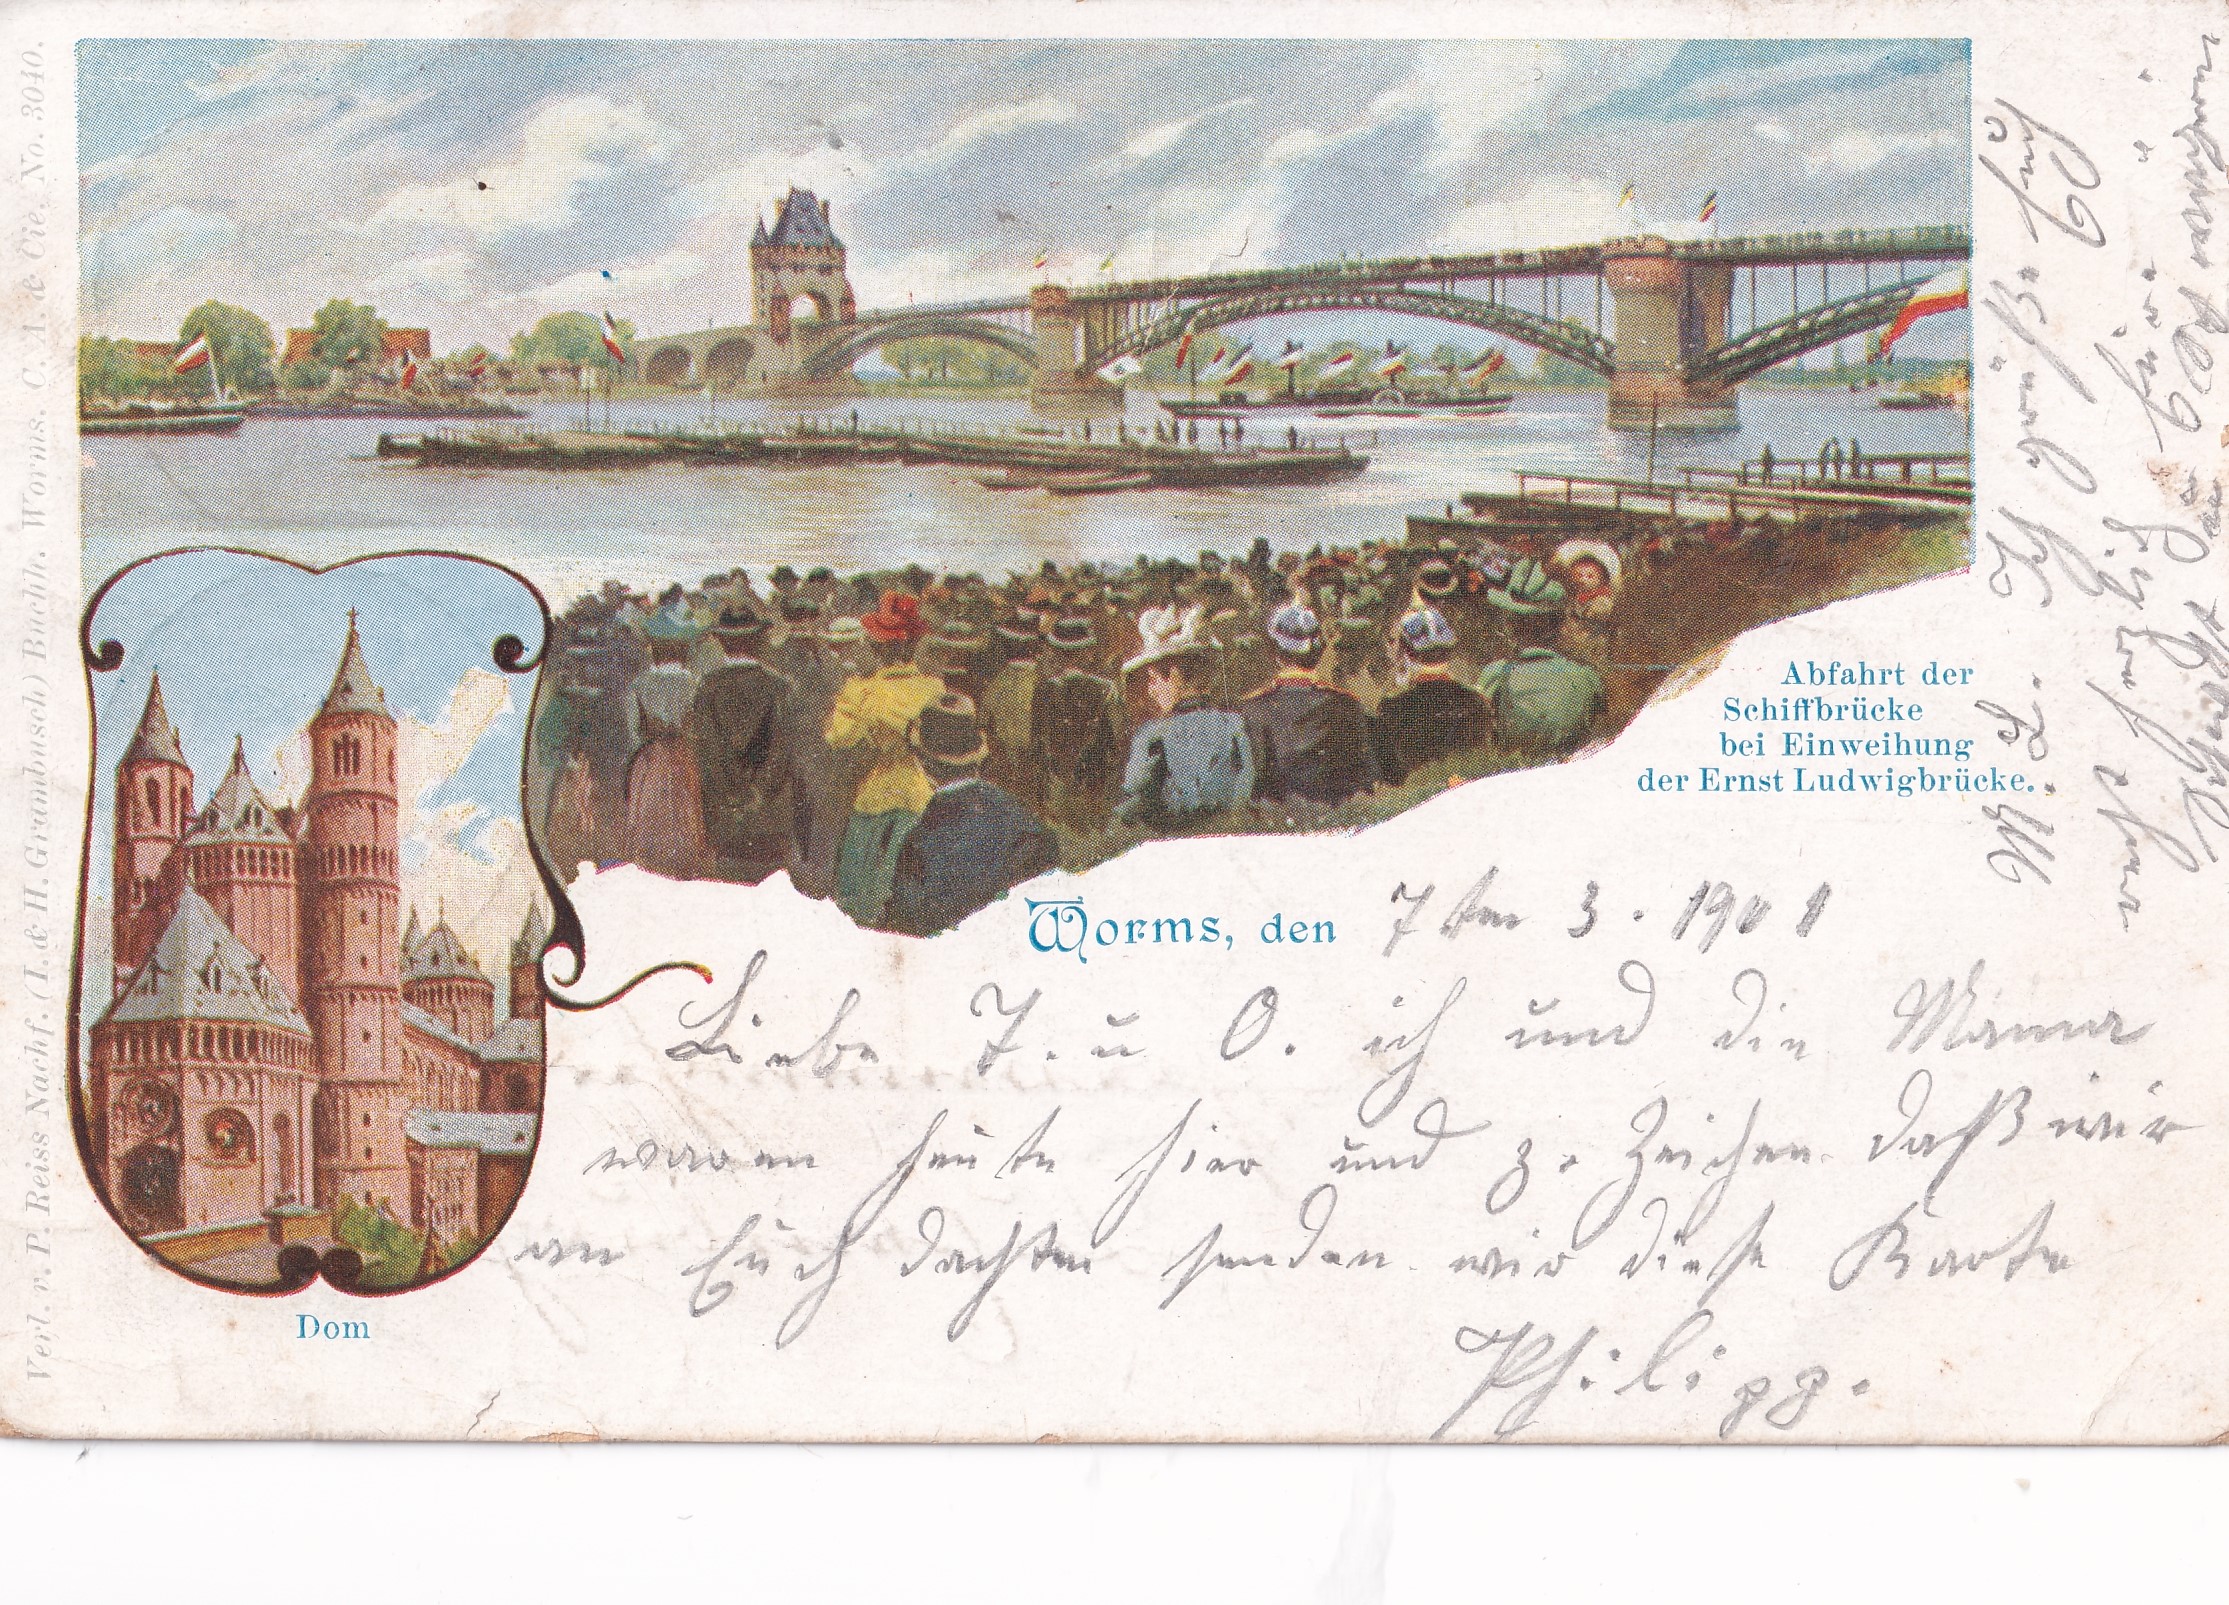 Verl. v. P. Reiss Nachf. (I. & H. Grumbusch) Buchh. Worms. C. A. & Cie. No. 3040.
Abfahrt der
Schiffbrücke
bei Einweihung
der Ernst Ludwigbrücke.
Dom
Worms, den 7ten 3. 1901
Liebe T. u O. ich und die Mama
waren heute hier und z. Zeichen daß wir
an Euch dachten senden wir diese Karte
Philipp.
M. L. Ich grüße Euch